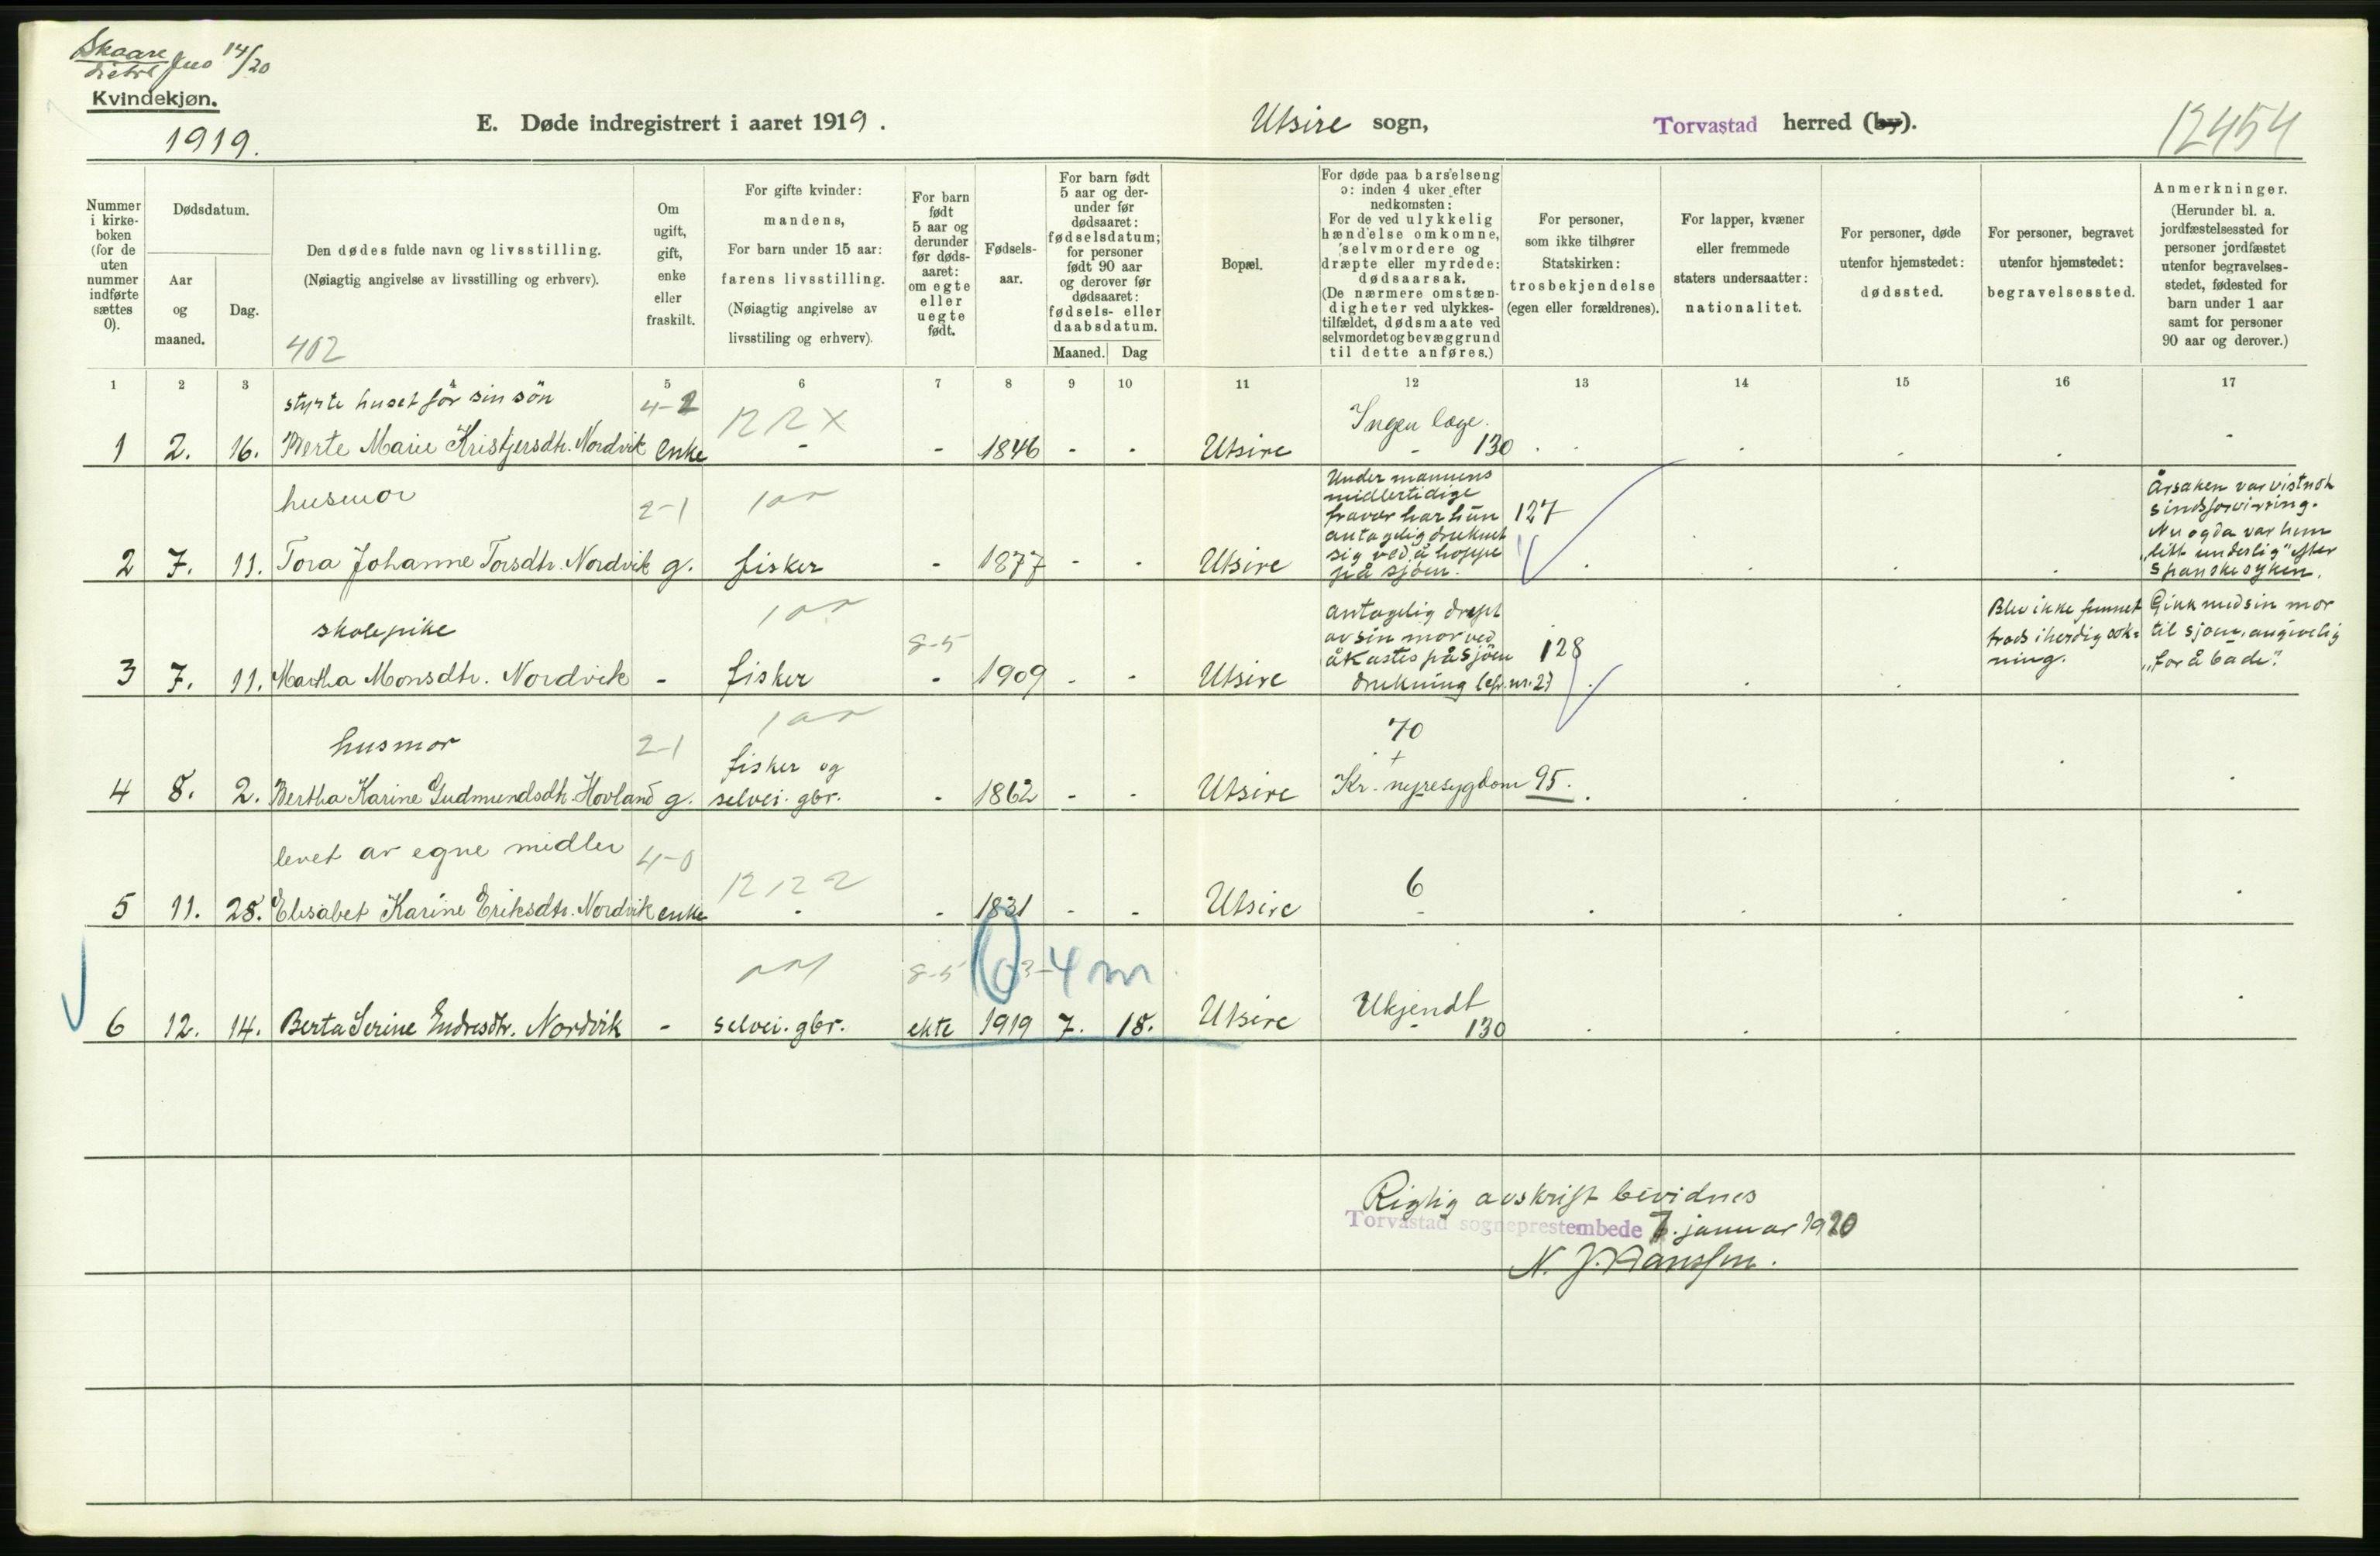 Skaare
distr Jno 14/20
Kvindekjøn.
1919.
E. Døde indregistrert i aaret 1919.
Utsire sogn,
Torvastad herred (by).
12454
Nummer i kirke-boken (for de uten nummer indførte sættes 0).
Dødsdatum.
Aar og maaned.
Dag.
Den dødes fulde navn og livsstilling.
(Nøiagtig angivelse av livsstilling og erhverv).
402
Om ugift, gift, enke eller fraskilt.
For gifte kvinder:
mandens,
For barn under 15 aar:
farens livsstilling.
(Nøiagtig angivelse av
livsstiling og erhverv).
For barn født 5 aar og derunder før døds-aaret: om egte eller uegte født.
Fødsels-aar.
For barn født 5 aar og der-under før dødsaaret: fødselsdatum; for personer født 90 aar og derover før dødsaaret: fødsels- eller daabsdatum.
Maaned. Dag
Bopæl.
For døde paa barselseng
ɔ: inden 4 uker efter
nedkomsten:
For de ved ulykkelig
hændelse omkomne,
selvmordere og
dræpte eller myrdede:
dødsaarsak.
(De nærmere omstæn-
digheter ved ulykkes-
tilfældet, dødsmaate ved
selvmordet og bevæggrund
til dette anføres.)
For personer,
som ikke tilhører
Statskirken:
trosbekjendelse
(egen eller forældrenes).
For lapper, kvæner
eller fremmede
staters undersaatter:
nationalitet.
For personer, døde
utenfor hjemstedet:
dødssted.
For personer, begravet
utenfor hjemstedet:
begravelsessted.
Anmerkninger.
(Herunder bl. a.
jordfæstelsessted for
personer jordfæstet
utenfor begravelses-
stedet, fødested for
barn under 1 aar
samt for personer
90 aar og derover.)
1 2 3 4 5 6 7 8 9 10 11 12 13 14 15 16 17
styrte huset for sin søn 4-2 12 2 X Ingen læge.
1 2. 16. Berte Marie Kristjersdtr. Nordvik enke - - 1846 - - Utsire - 130
husmor 2-1
2 7. 11. Tora Johanne Torsdtr. Nordvik g. fisker - 1877 - - Utsire
Under mannens
midlertidige
fravær har hun 127
antagelig druknet
sig ved å hoppe
på sjøen.
Årsaken var vistnok
sindsforvirring.
Nu og da var hun
„litt underlig" efter
spanskesyken.
skolepike 8-5
3 7. 11. Martha Monsdtr. Nordvik - fisker - 1909 - - Utsire
antagelig drept
av sin mor ved
å kastes på sjøen 128
drukning (cfr. nr. 2)
Blev ikke funnet
trods iherdig søk-
ning.
Gikk med sin mor
til sjøen, angivelig
„for å bade".
husmor 2-1 fisker og 70
+
4 8. 2. Bertha Karine Gudmundsdtr. Hovland g. selvei. gbr. - 1862 - - Utsire Kr. nyresygdom 95.
levet av egne midler 4-0 12 12 2 6
5 11. 28. Elisabet Karine Eriksdtr. Nordvik enke - - 1831 - - Utsire -
8-5 4 m Ukjendt
6 12. 14. Berta Serine Endresdtr. Nordvik - selvei. gbr. ekte 1919 7. 18. Utsire - 130
Rigtig avskrift bevidnes
Torvastad sogneprestembede 7. januar 1920
N. J. Hanssen.